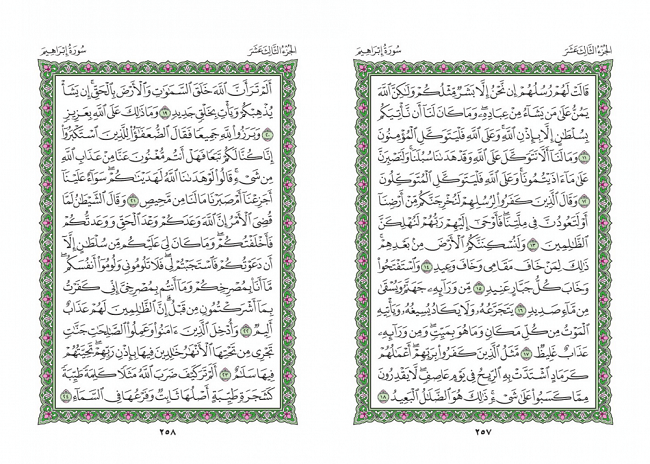 الجزء الثالث عشر
سورة إبراهيم
قَالَتْ لَهُمْ رُسُلُهُمْ إِن نَّحْنُ إِلَّا بَشَرٌ مِّثْلُكُمْ وَلَٰكِنَّ ٱللَّهَ
يَمُنُّ عَلَىٰ مَن يَشَآءُ مِنْ عِبَادِهِۦ وَمَا كَانَ لَنَآ أَن نَّأْتِيَكُم
بِسُلْطَٰنٍ إِلَّا بِإِذْنِ ٱللَّهِ وَعَلَى ٱللَّهِ فَلْيَتَوَكَّلِ ٱلْمُؤْمِنُونَ
١١ وَمَا لَنَآ أَلَّا نَتَوَكَّلَ عَلَى ٱللَّهِ وَقَدْ هَدَىٰنَا سُبُلَنَا وَلَنَصْبِرَنَّ
عَلَىٰ مَآ ءَاذَيْتُمُونَا وَعَلَى ٱللَّهِ فَلْيَتَوَكَّلِ ٱلْمُتَوَكِّلُونَ
١٢ وَقَالَ ٱلَّذِينَ كَفَرُوا۟ لِرُسُلِهِمْ لَنُخْرِجَنَّكُم مِّنْ أَرْضِنَآ
أَوْ لَتَعُودُنَّ فِى مِلَّتِنَا فَأَوْحَىٰٓ إِلَيْهِمْ رَبُّهُمْ لَنُهْلِكَنَّ
ٱلظَّٰلِمِينَ ١٣ وَلَنُسْكِنَنَّكُمُ ٱلْأَرْضَ مِنۢ بَعْدِهِمْ
ذَٰلِكَ لِمَنْ خَافَ مَقَامِى وَخَافَ وَعِيدِ ١٤ وَٱسْتَفْتَحُوا۟
وَخَابَ كُلُّ جَبَّارٍ عَنِيدٍ ١٥ مِّن وَرَآئِهِۦ جَهَنَّمُ وَيُسْقَىٰ
مِن مَّآءٍ صَدِيدٍ ١٦ يَتَجَرَّعُهُۥ وَلَا يَكَادُ يُسِيغُهُۥ وَيَأْتِيهِ
ٱلْمَوْتُ مِن كُلِّ مَكَانٍ وَمَا هُوَ بِمَيِّتٍ وَمِن وَرَآئِهِۦ
عَذَابٌ غَلِيظٌ ١٧ مَّثَلُ ٱلَّذِينَ كَفَرُوا۟ بِرَبِّهِمْ أَعْمَٰلُهُمْ
كَرَمَادٍ ٱشْتَدَّتْ بِهِ ٱلرِّيحُ فِى يَوْمٍ عَاصِفٍ لَّا يَقْدِرُونَ
مِمَّا كَسَبُوا۟ عَلَىٰ شَىْءٍ ذَٰلِكَ هُوَ ٱلضَّلَٰلُ ٱلْبَعِيدُ ١٨
٢٥٧
الجزء الثالث عشر
سورة إبراهيم
أَلَمْ تَرَ أَنَّ ٱللَّهَ خَلَقَ ٱلسَّمَٰوَٰتِ وَٱلْأَرْضَ بِٱلْحَقِّ إِن يَشَأْ
يُذْهِبْكُمْ وَيَأْتِ بِخَلْقٍ جَدِيدٍ ١٩ وَمَا ذَٰلِكَ عَلَى ٱللَّهِ بِعَزِيزٍ
٢٠ وَبَرَزُوا۟ لِلَّهِ جَمِيعًا فَقَالَ ٱلضُّعَفَٰٓؤُا۟ لِلَّذِينَ ٱسْتَكْبَرُوٓا۟
إِنَّا كُنَّا لَكُمْ تَبَعًا فَهَلْ أَنتُم مُّغْنُونَ عَنَّا مِنْ عَذَابِ ٱللَّهِ
مِن شَىْءٍ قَالُوا۟ لَوْ هَدَىٰنَا ٱللَّهُ لَهَدَيْنَٰكُمْ سَوَآءٌ عَلَيْنَآ
أَجَزِعْنَآ أَمْ صَبَرْنَا مَا لَنَا مِن مَّحِيصٍ ٢١ وَقَالَ ٱلشَّيْطَٰنُ لَمَّا
قُضِىَ ٱلْأَمْرُ إِنَّ ٱللَّهَ وَعَدَكُمْ وَعْدَ ٱلْحَقِّ وَوَعَدتُّكُمْ
فَأَخْلَفْتُكُمْ وَمَا كَانَ لِىَ عَلَيْكُم مِّن سُلْطَٰنٍ إِلَّآ
أَن دَعَوْتُكُمْ فَٱسْتَجَبْتُمْ لِى فَلَا تَلُومُونِى وَلُومُوٓا۟ أَنفُسَكُم
مَّآ أَنَا۠ بِمُصْرِخِكُمْ وَمَآ أَنتُم بِمُصْرِخِىَّ إِنِّى كَفَرْتُ
بِمَآ أَشْرَكْتُمُونِ مِن قَبْلُ إِنَّ ٱلظَّٰلِمِينَ لَهُمْ عَذَابٌ
أَلِيمٌ ٢٢ وَأُدْخِلَ ٱلَّذِينَ ءَامَنُوا۟ وَعَمِلُوا۟ ٱلصَّٰلِحَٰتِ جَنَّٰتٍ
تَجْرِى مِن تَحْتِهَا ٱلْأَنْهَٰرُ خَٰلِدِينَ فِيهَا بِإِذْنِ رَبِّهِمْ تَحِيَّتُهُمْ
فِيهَا سَلَٰمٌ ٢٣ أَلَمْ تَرَ كَيْفَ ضَرَبَ ٱللَّهُ مَثَلًا كَلِمَةً طَيِّبَةً
كَشَجَرَةٍ طَيِّبَةٍ أَصْلُهَا ثَابِتٌ وَفَرْعُهَا فِى ٱلسَّمَآءِ ٢٤
٢٥٨